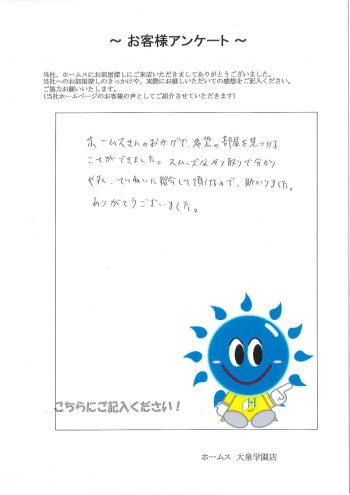 ～ お客様アンケート ～
当社、ホームスにお部屋探しにご来店いただきましてありがとうございました。
当社へのお部屋探しのきっかけや、実際にお越しいただいての感想をご記入ください。
ご協力お願いいたします。
(当社ホームページのお客様の声としてご紹介させていただきます)
ホームズさんのおかげで、希望の部屋を見つける
ことができました。スムーズなやり取りで分かり
やすく、ていねいに紹介して頂けるので、助かりました。
ありがとうございました。
こちらにご記入ください！
ホームス 大泉学園店